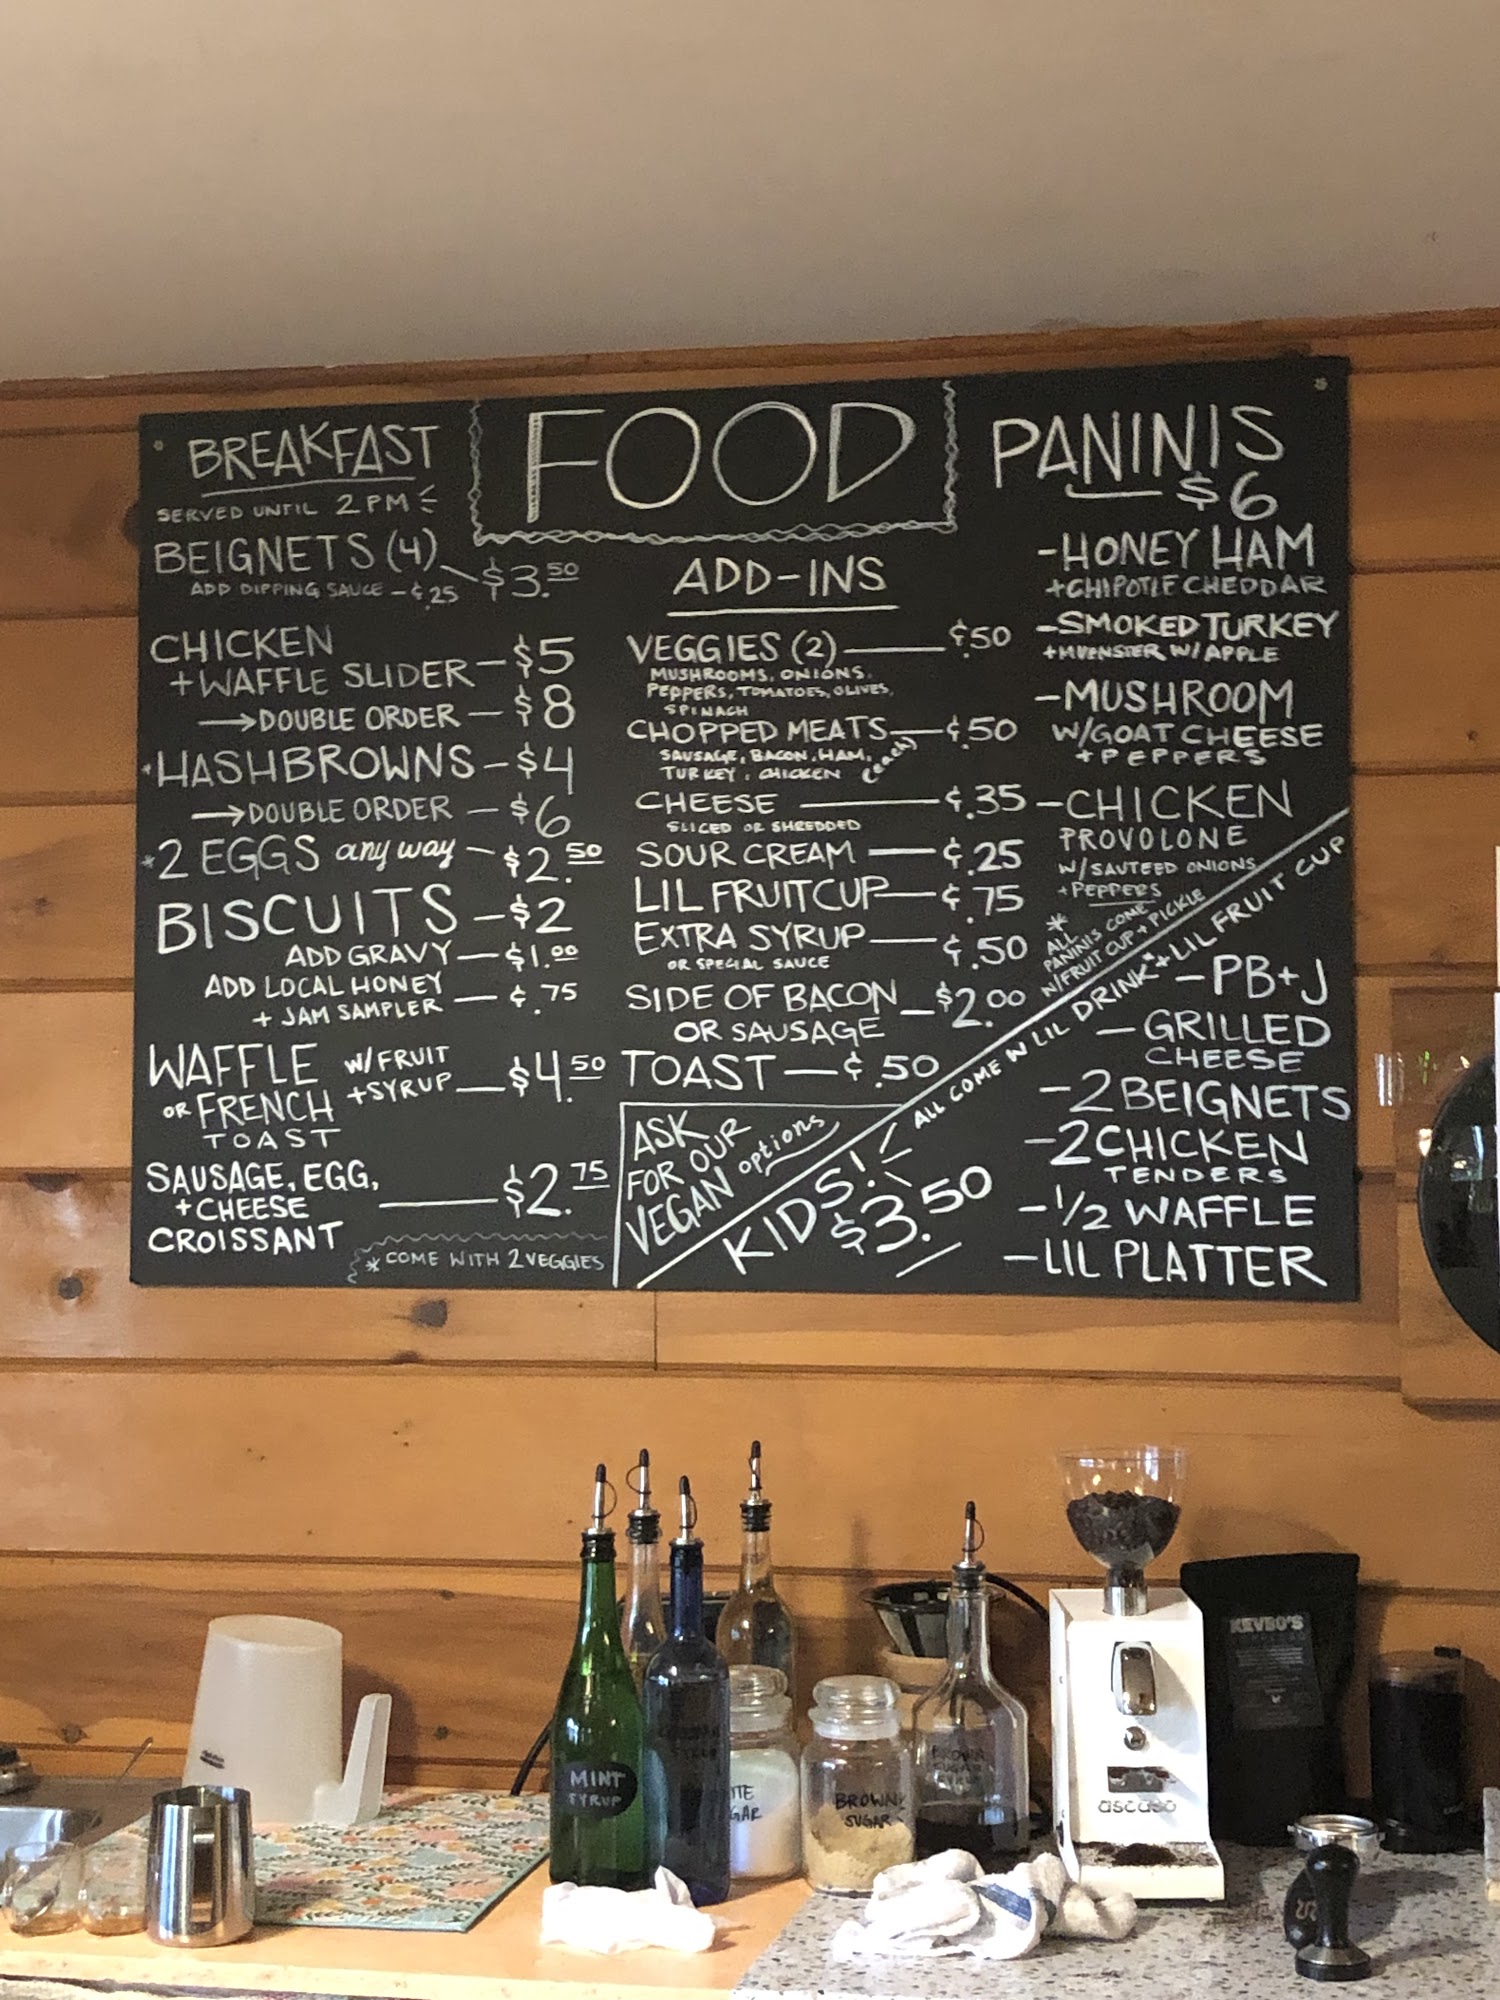 FOOD
BREAKFAST
SERVED UNTIL 2 PM
BEIGNETS (4) $3.50
ADD DIPPING SAUCE - ¢.25
CHICKEN
+ WAFFLE SLIDER - $5
→ DOUBLE ORDER - $8
*HASHBROWNS - $4
→ DOUBLE ORDER - $6
*2 EGGS any way - $2.50
BISCUITS - $2
ADD GRAVY - $1.00
ADD LOCAL HONEY
+ JAM SAMPLER - ¢.75
WAFFLE W/ FRUIT
OR FRENCH + SYRUP - $4.50
TOAST
SAUSAGE, EGG,
+ CHEESE - $2.75
CROISSANT
* COME WITH 2 VEGGIES
ADD-INS
VEGGIES (2) - ¢.50
MUSHROOMS, ONIONS,
PEPPERS, TOMATOES, OLIVES,
SPINACH
CHOPPED MEATS - ¢.50
SAUSAGE, BACON, HAM,
TURKEY, CHICKEN (each)
CHEESE - ¢.35
SLICED OR SHREDDED
SOUR CREAM - ¢.25
LIL FRUIT CUP - ¢.75
EXTRA SYRUP - ¢.50
OR SPECIAL SAUCE
SIDE OF BACON - $2.00
OR SAUSAGE
TOAST - ¢.50
ASK
FOR OUR
VEGAN options
PANINIS
$6
-HONEY HAM
+CHIPOTLE CHEDDAR
-SMOKED TURKEY
+MUENSTER W/ APPLE
-MUSHROOM
W/GOAT CHEESE
+ PEPPERS
-CHICKEN
PROVOLONE
W/SAUTEED ONIONS
+ PEPPERS
*
ALL
PANINIS COME
W/FRUIT CUP + PICKLE
KIDS!
$3.50
ALL COME W LIL DRINK* + LIL FRUIT CUP
-PB+J
-GRILLED
CHEESE
-2 BEIGNETS
-2 CHICKEN
TENDERS
-1/2 WAFFLE
-LIL PLATTER
MINT
SYRUP
BROWN
SUGAR
BROWN
SUGAR
KEVBO'S
ascaso